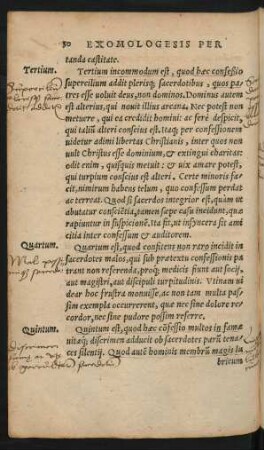 50 EXOMOLOGESIS PER
tanda castitate.
Tertium.
Tertium incommodum est, quod hæc confeßio
supercilium addit plerisq; sacerdotibus, quos pa-
tres esse uoluit deus, non dominos. Dominus autem
est alterius, qui nouit illius arcana. Nec potest non
metuere, qui ea credidit homini: ac ferè despicit,
qui talium alteri conscius est. Itaq; per confessionem
uidetur adimi libertas Christianis, inter quos non
uult Christus esse dominium, & extingui charitas:
odit enim, quisquis metuit: & uix amare potest,
qui turpium conscius est alteri. Certe minoris fa-
cit, nimirum habens telum, quo confessum perdat
ac terreat. Quod si sacerdos integrior est, quàm ut
abutatur conscientia, tamen sæpe casu incidunt, quæ
rapiuntur in suspicionem. Ita fit, ut insyncera sit ami
citia inter confessum & auditorem.
Quartum.
Quartum est, quod confitens non raro incidit in
sacerdotes malos, qui sub prætextu confessionis pa
trant non referenda, proq; medicis fiunt aut socij,
aut magistri, aut discipuli turpitudinis. Vtinam ui
dear hoc frustra monuisse, ac non tam multa pas-
sim exempla occurrerent, quæ nec sine dolore re-
cordor, nec sine pudore possim referre.
Quintum.
Quintum est, quod hæc cõfeßio multos in famæ
uitæq; discrimen adducit ob sacerdotes parũ tena-
ces silentij. Quod autẽ hominis membrũ magis lu
bricum